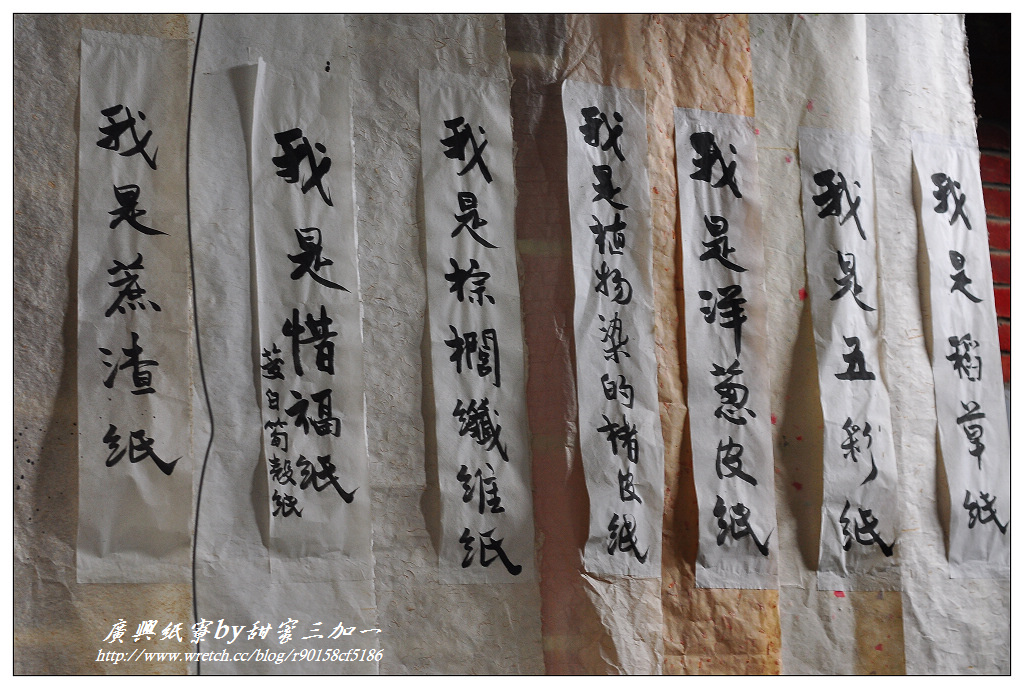 我是蔗渣紙
我是惜福紙
茭白筍殼紙
我是棕櫚纖維紙
我是植物染的楮皮紙
我是洋蔥皮紙
我是五彩紙
我是稻草紙
廣興紙寮by甜蜜三加一
http://www.wretch.cc/blog/r90158cf5186